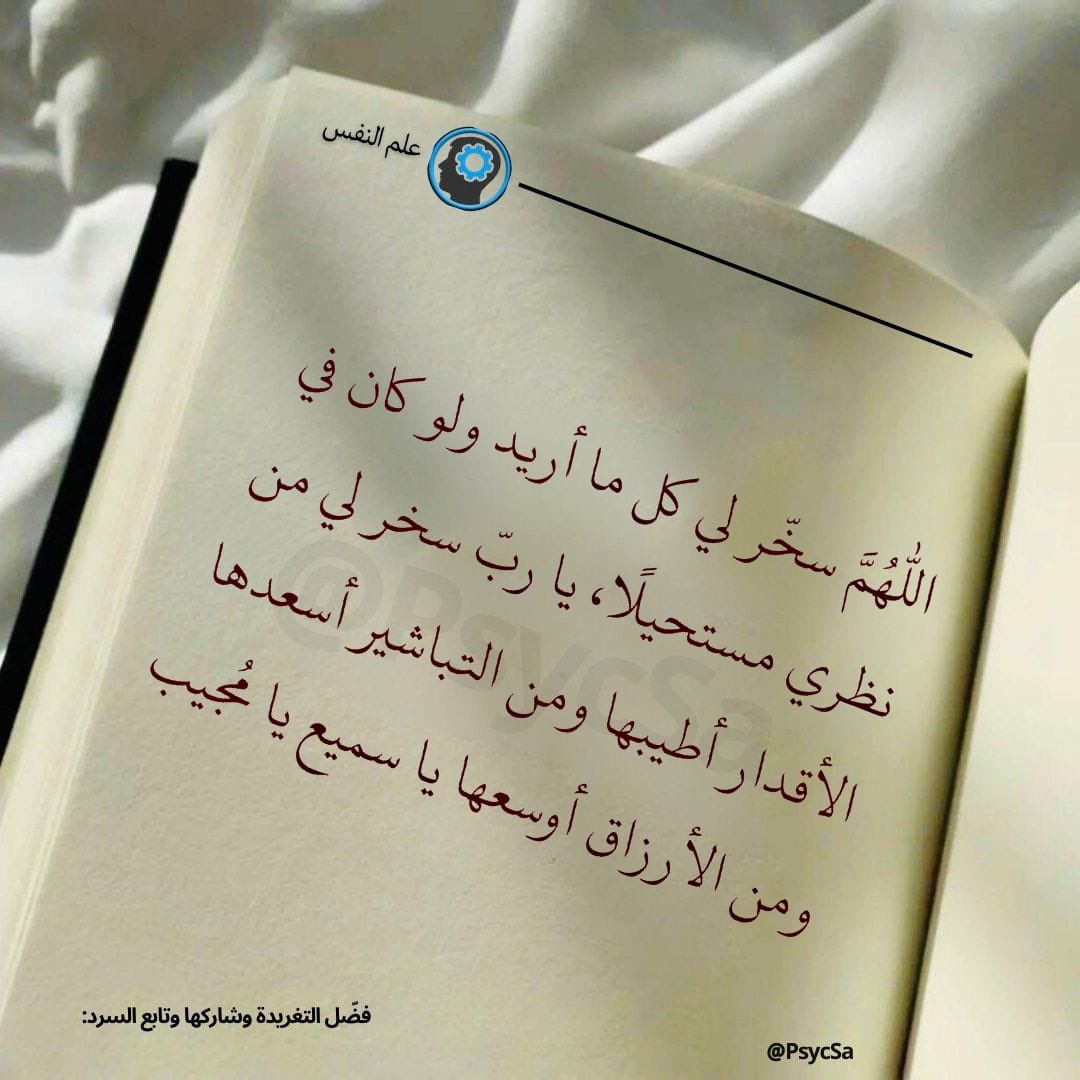 علم النفس
اللّٰهُمَّ سخّر لي كل ما أريد ولو كان في
نظري مستحيلًا، يا ربّ سخر لي من من
الأقدار أطيبها ومن التباشير أسعدها
ومن الأرزاق أوسعها يا سميع يا مُجيب
@PsycSa
فضّل التغريدة وشاركها وتابع السرد:
@PsycSa